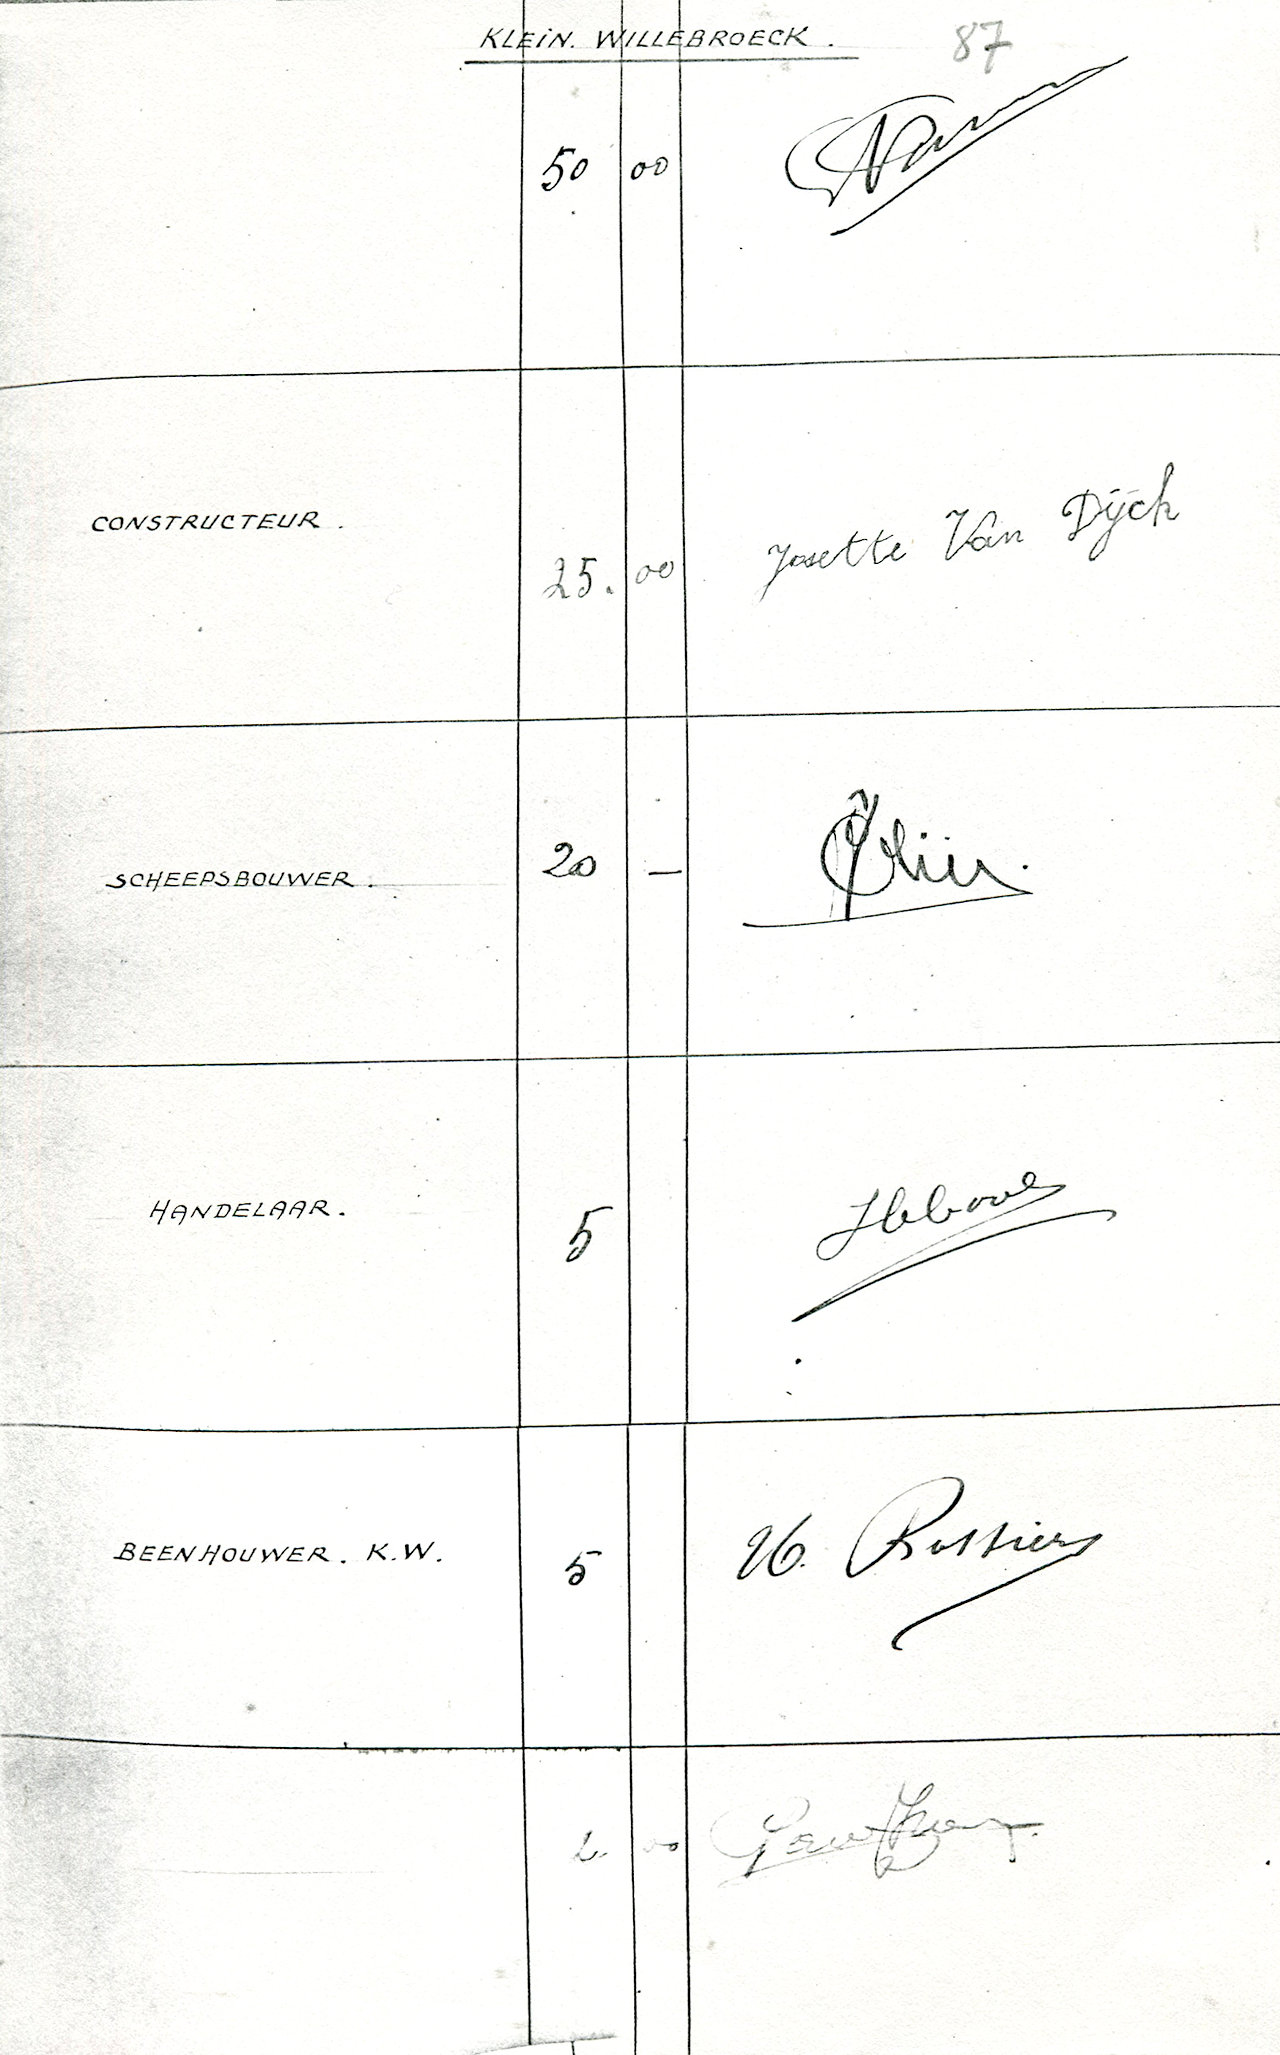 KLEIN. WILLEBROECK.
87
50 00
CONSTRUCTEUR.
25. 00 Josette Van Dijck
SCHEEPSBOUWER.
20 —
HANDELAAR.
5
BEENHOUWER. K.W.
5
2. 00